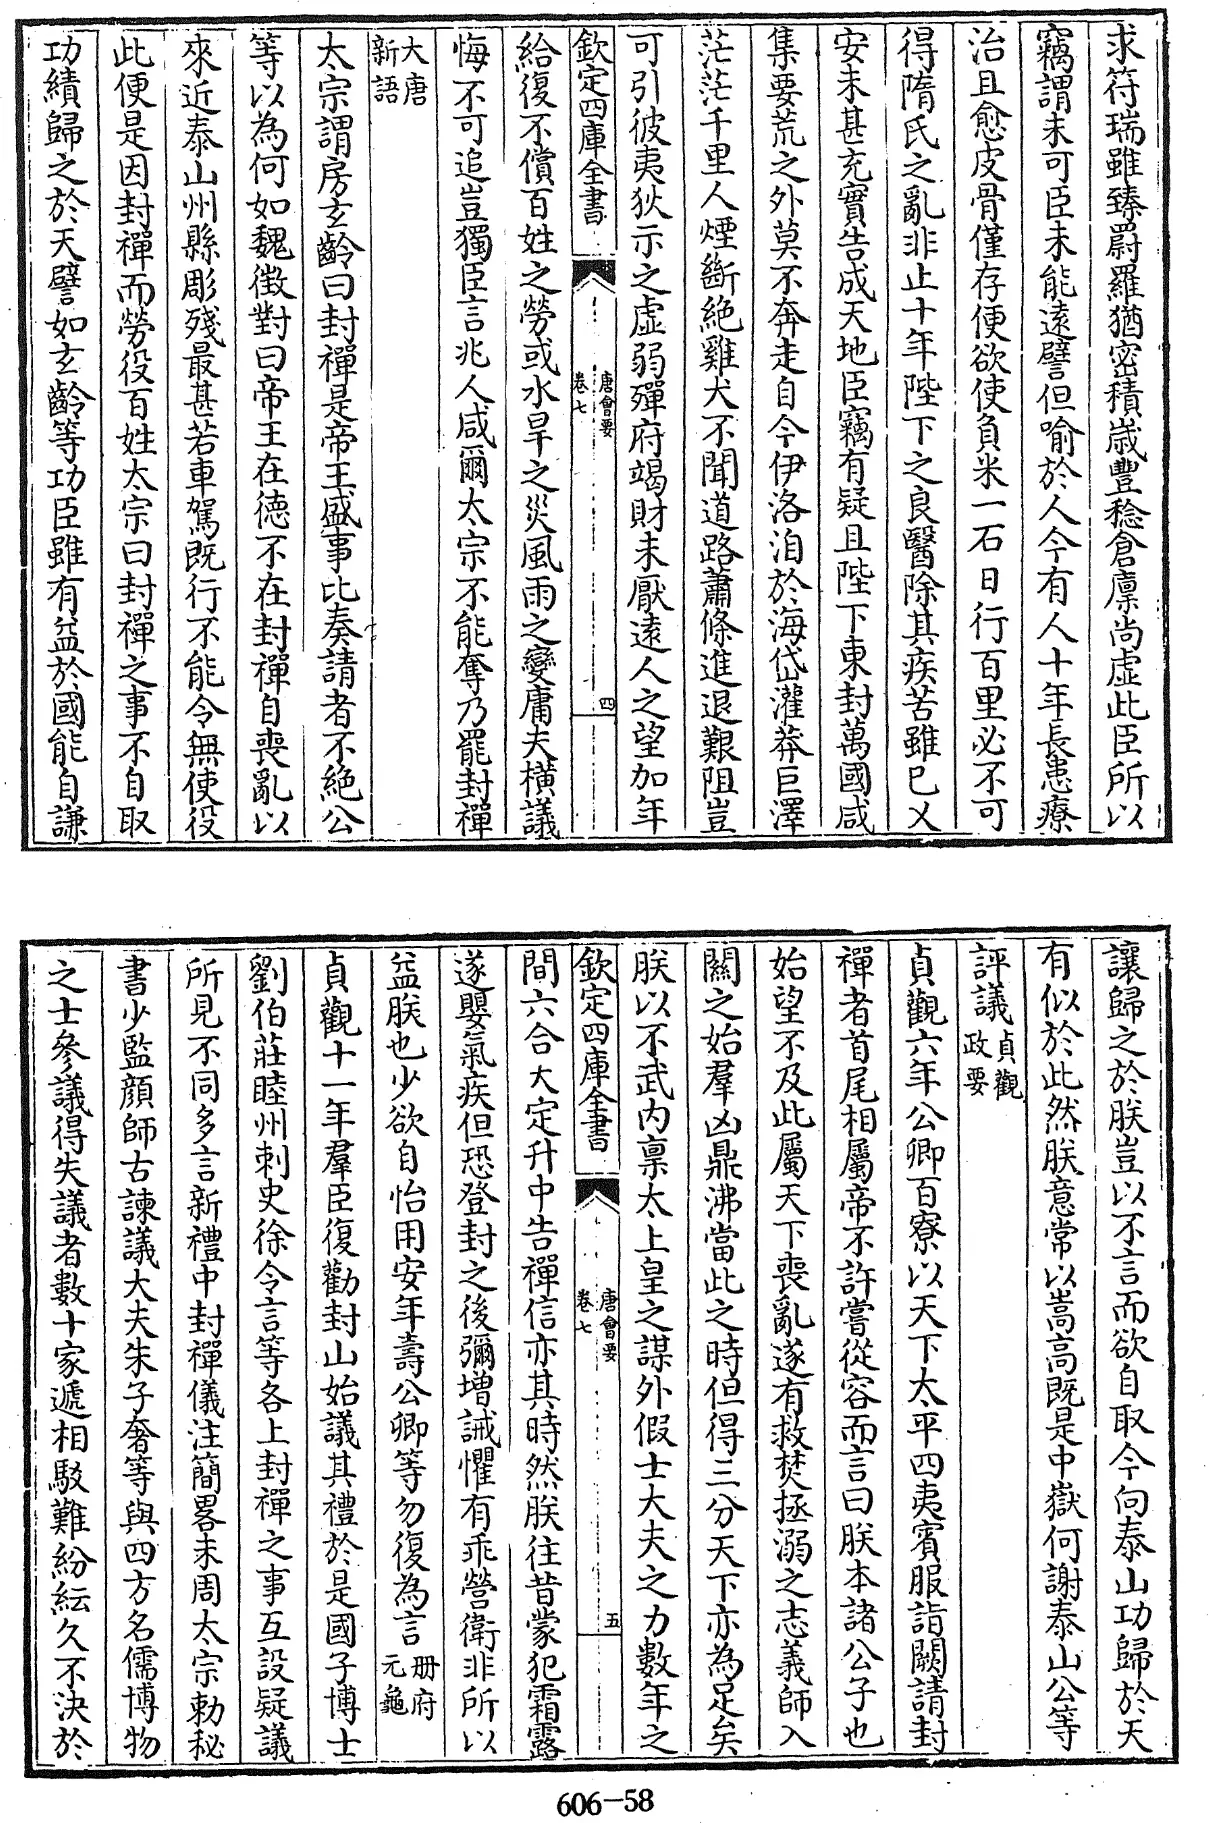 求符瑞雖臻罻羅猶密積歲豐稔倉廪尚虛此臣所以
竊謂未可臣未能遠譬但喻於人今有人十年長患療
治且愈皮骨僅存便欲使負米一石日行百里必不可
得隋氏之亂非止十年陛下之良醫除其疾苦雖已乂
安未甚充實告成天地臣竊有疑且陛下東封萬國咸
集要荒之外莫不奔走自今伊洛洎於海岱灌莽巨澤
茫茫千里人煙斷絶雞犬不聞道路蕭條進退艱阻豈
可引彼夷狄示之虛弱殫府竭財未厭遠人之望加年
欽定四庫全書
唐會要
卷七
四
給復不償百姓之勞或水旱之災風雨之變庸夫横議
悔不可追豈獨臣言兆人咸爾太宗不能奪乃罷封禪
大唐
新語
太宗謂房玄齡曰封禪是帝王盛事比奏請者不絶公
等以為何如魏徴對曰帝王在德不在封禪自喪亂以
來近泰山州縣彫殘最甚若車駕既行不能令無使役
此便是因封禪而勞役百姓太宗曰封禪之事不自取
功績歸之於天譬如玄齡等功臣雖有益於國能自謙
讓歸之於朕豈以不言而欲自取今向泰山功歸於天
有似於此然朕意常以嵩高既是中嶽何謝泰山公等
評議
貞觀
政要
貞觀六年公卿百寮以天下太平四夷賓服詣闕請封
禪者首尾相屬帝不許嘗從容而言曰朕本諸公子也
始望不及此屬天下喪亂遂有救焚拯溺之志義師入
關之始羣凶鼎沸當此之時但得三分天下亦為足矣
朕以不武内禀太上皇之謀外假士大夫之力數年之
欽定四庫全書
唐會要
卷七
五
間六合大定升中告禪信亦其時然朕往昔蒙犯霜露
遂嬰氣疾但恐登封之後彌增誡懼有乖營衛非所以
益朕也少欲自怡用安年壽公卿等勿復為言
冊府
元龜
貞觀十一年羣臣復勸封山始議其禮於是國子博士
劉伯莊睦州刺史徐令言等各上封禪之事互設疑議
所見不同多言新禮中封禪儀注簡畧未周太宗勅秘
書少監顔師古諫議大夫朱子奢等與四方名儒博物
之士參議得失議者數十家遞相駁難紛紜久不決於
606-58